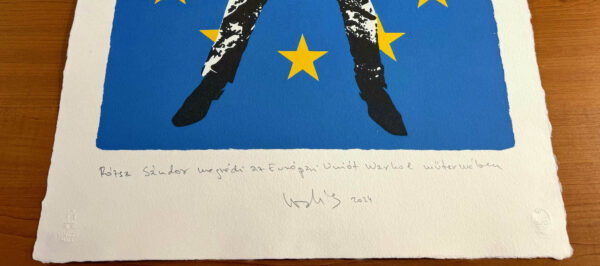 Rózsa Sándor megvédi az Európai Uniót Warhol műtermében
2024